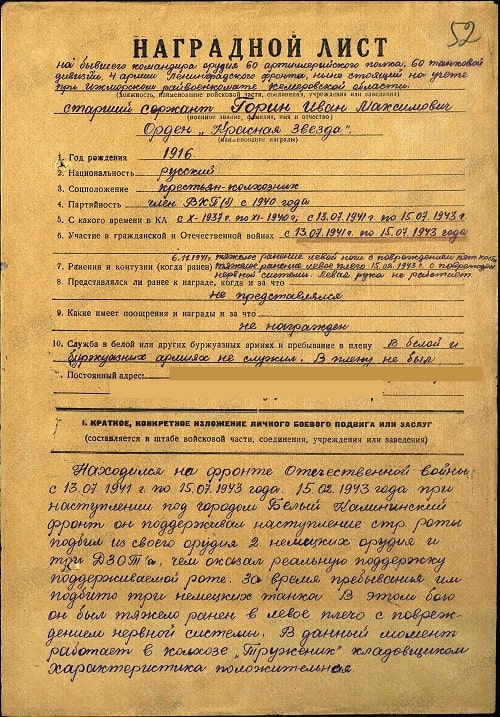 52
НАГРАДНОЙ ЛИСТ
на бывшего командира орудия 60 артиллерийского полка, 60 танковой
дивизии, 4 армии Ленинградского фронта, ныне стоящий на учете
при Ижморском райвоенкомате Кемеровской области.
(должность, наименование войсковой части, соединения, учреждения или заведения)
старший сержант Горин Иван Максимович
(военное звание, фамилия, имя и отчество)
Орден „Красная Звезда"
(наименование награды)
1. Год рождения 1916.
2. Национальность русский
3. Соцположение крестьян-колхозник
4. Партийность член ВКП(б) с 1940 года
5. С какого времени в КА с X-1937г. по XI-1940г., с 13.07.1941 г. по 15.07.1943 г.
6. Участие в гражданской и Отечественной войнах с 13.07.1941 г. по 15.07.1943 года
6.12.1941г. тяжелое ранение левой ноги с повреждением
7. Ранения и контузии (когда ранен) тяжелое ранение левое плечо 15.02.1943 г. с поврежден
нервной системы. левая рука не работает
8. Представлялся ли ранее к награде, когда и за что
не представлялся
9. Какие имеет поощрения и награды и за что
не награжден
10. Служба в белой или других буржуазных армиях и пребывание в плену В белой и
буржуазных армиях не служил. В плену не был
Постоянный адрес:
I. КРАТКОЕ, КОНКРЕТНОЕ ИЗЛОЖЕНИЕ ЛИЧНОГО БОЕВОГО ПОДВИГА ИЛИ ЗАСЛУГ
(составляется в штабе войсковой части, соединения, учреждения или заведения)
Находился на фронте Отечественной войны
с 13.07.1941 г. по 15.07.1943 года. 15.02.1943 года при
наступлении под городом Белый Калининский
фронт он поддерживал наступление стр. роты
подбил из своего орудия 2 немецких орудия и
три ДЗОТ'а, чем оказал реальную поддержку
поддерживаемой роте. За время пребывания им
подбито три немецких танка. В этом бою
он был тяжело ранен в левое плечо с повреж-
дением нервной системы. В данный момент
работает в колхозе „Труженик" кладовщиком
характеристика положительная.